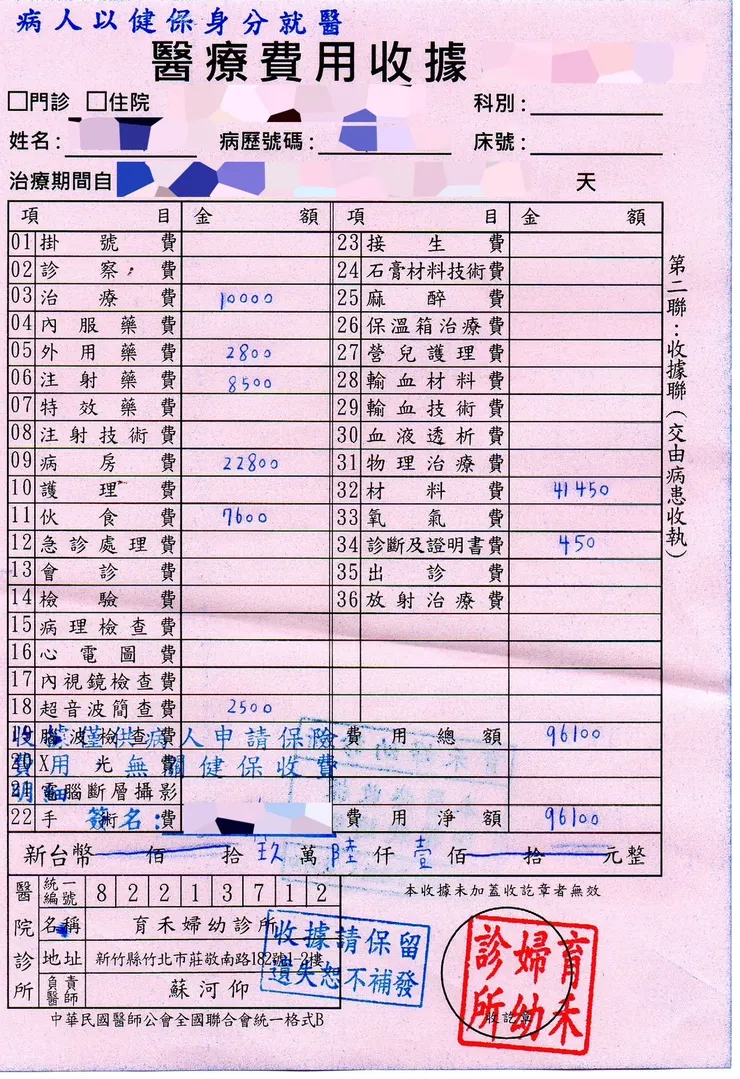 病人以健保身分就醫
醫療費用收據
□門診 □住院 科別：
姓名： 病歷號碼： 床號：
治療期間自 天
項目 金額 項目 金額
01 掛號費 23 接生費
02 診察費 24 石膏材料技術費
03 治療費 10000 25 麻醉費
04 內服藥費 26 保溫箱治療費
05 外用藥費 2800 27 營兒護理費
06 注射藥費 8500 28 輸血材料費
07 特效藥費 29 輸血技術費
08 注射技術費 30 血液透析費
09 病房費 22800 31 物理治療費
10 護理費 32 材料費 41450
11 伙食費 7600 33 氧氣費
12 急診處理費 34 診斷及證明書費 450
13 會診費 35 出診費
14 檢驗費 36 放射治療費
15 病理檢查費
16 心電圖費
17 內視鏡檢查費
18 超音波簡查費 2500
19 腦波檢查費 費用總額 96100
20 X用光費
21 電腦斷層攝影
22 手術費 費用淨額 96100
收據僅供病人申請保險
費用無關健保收費
明細
簽名：
新台幣 佰 拾 玖 萬 陸 仟 壹 佰 拾 元整
第二聯：收據聯（交由病患收執）
醫院診所
統一編號 82213712
本收據未加蓋收訖章者無效
名稱 育禾婦幼診所
地址 新竹縣竹北市莊敬南路182號1-2樓
負責醫師 蘇河仰
收據請保留
遺失恕不補發
育禾婦幼診所
收訖章
中華民國醫師公會全國聯合會統一格式B